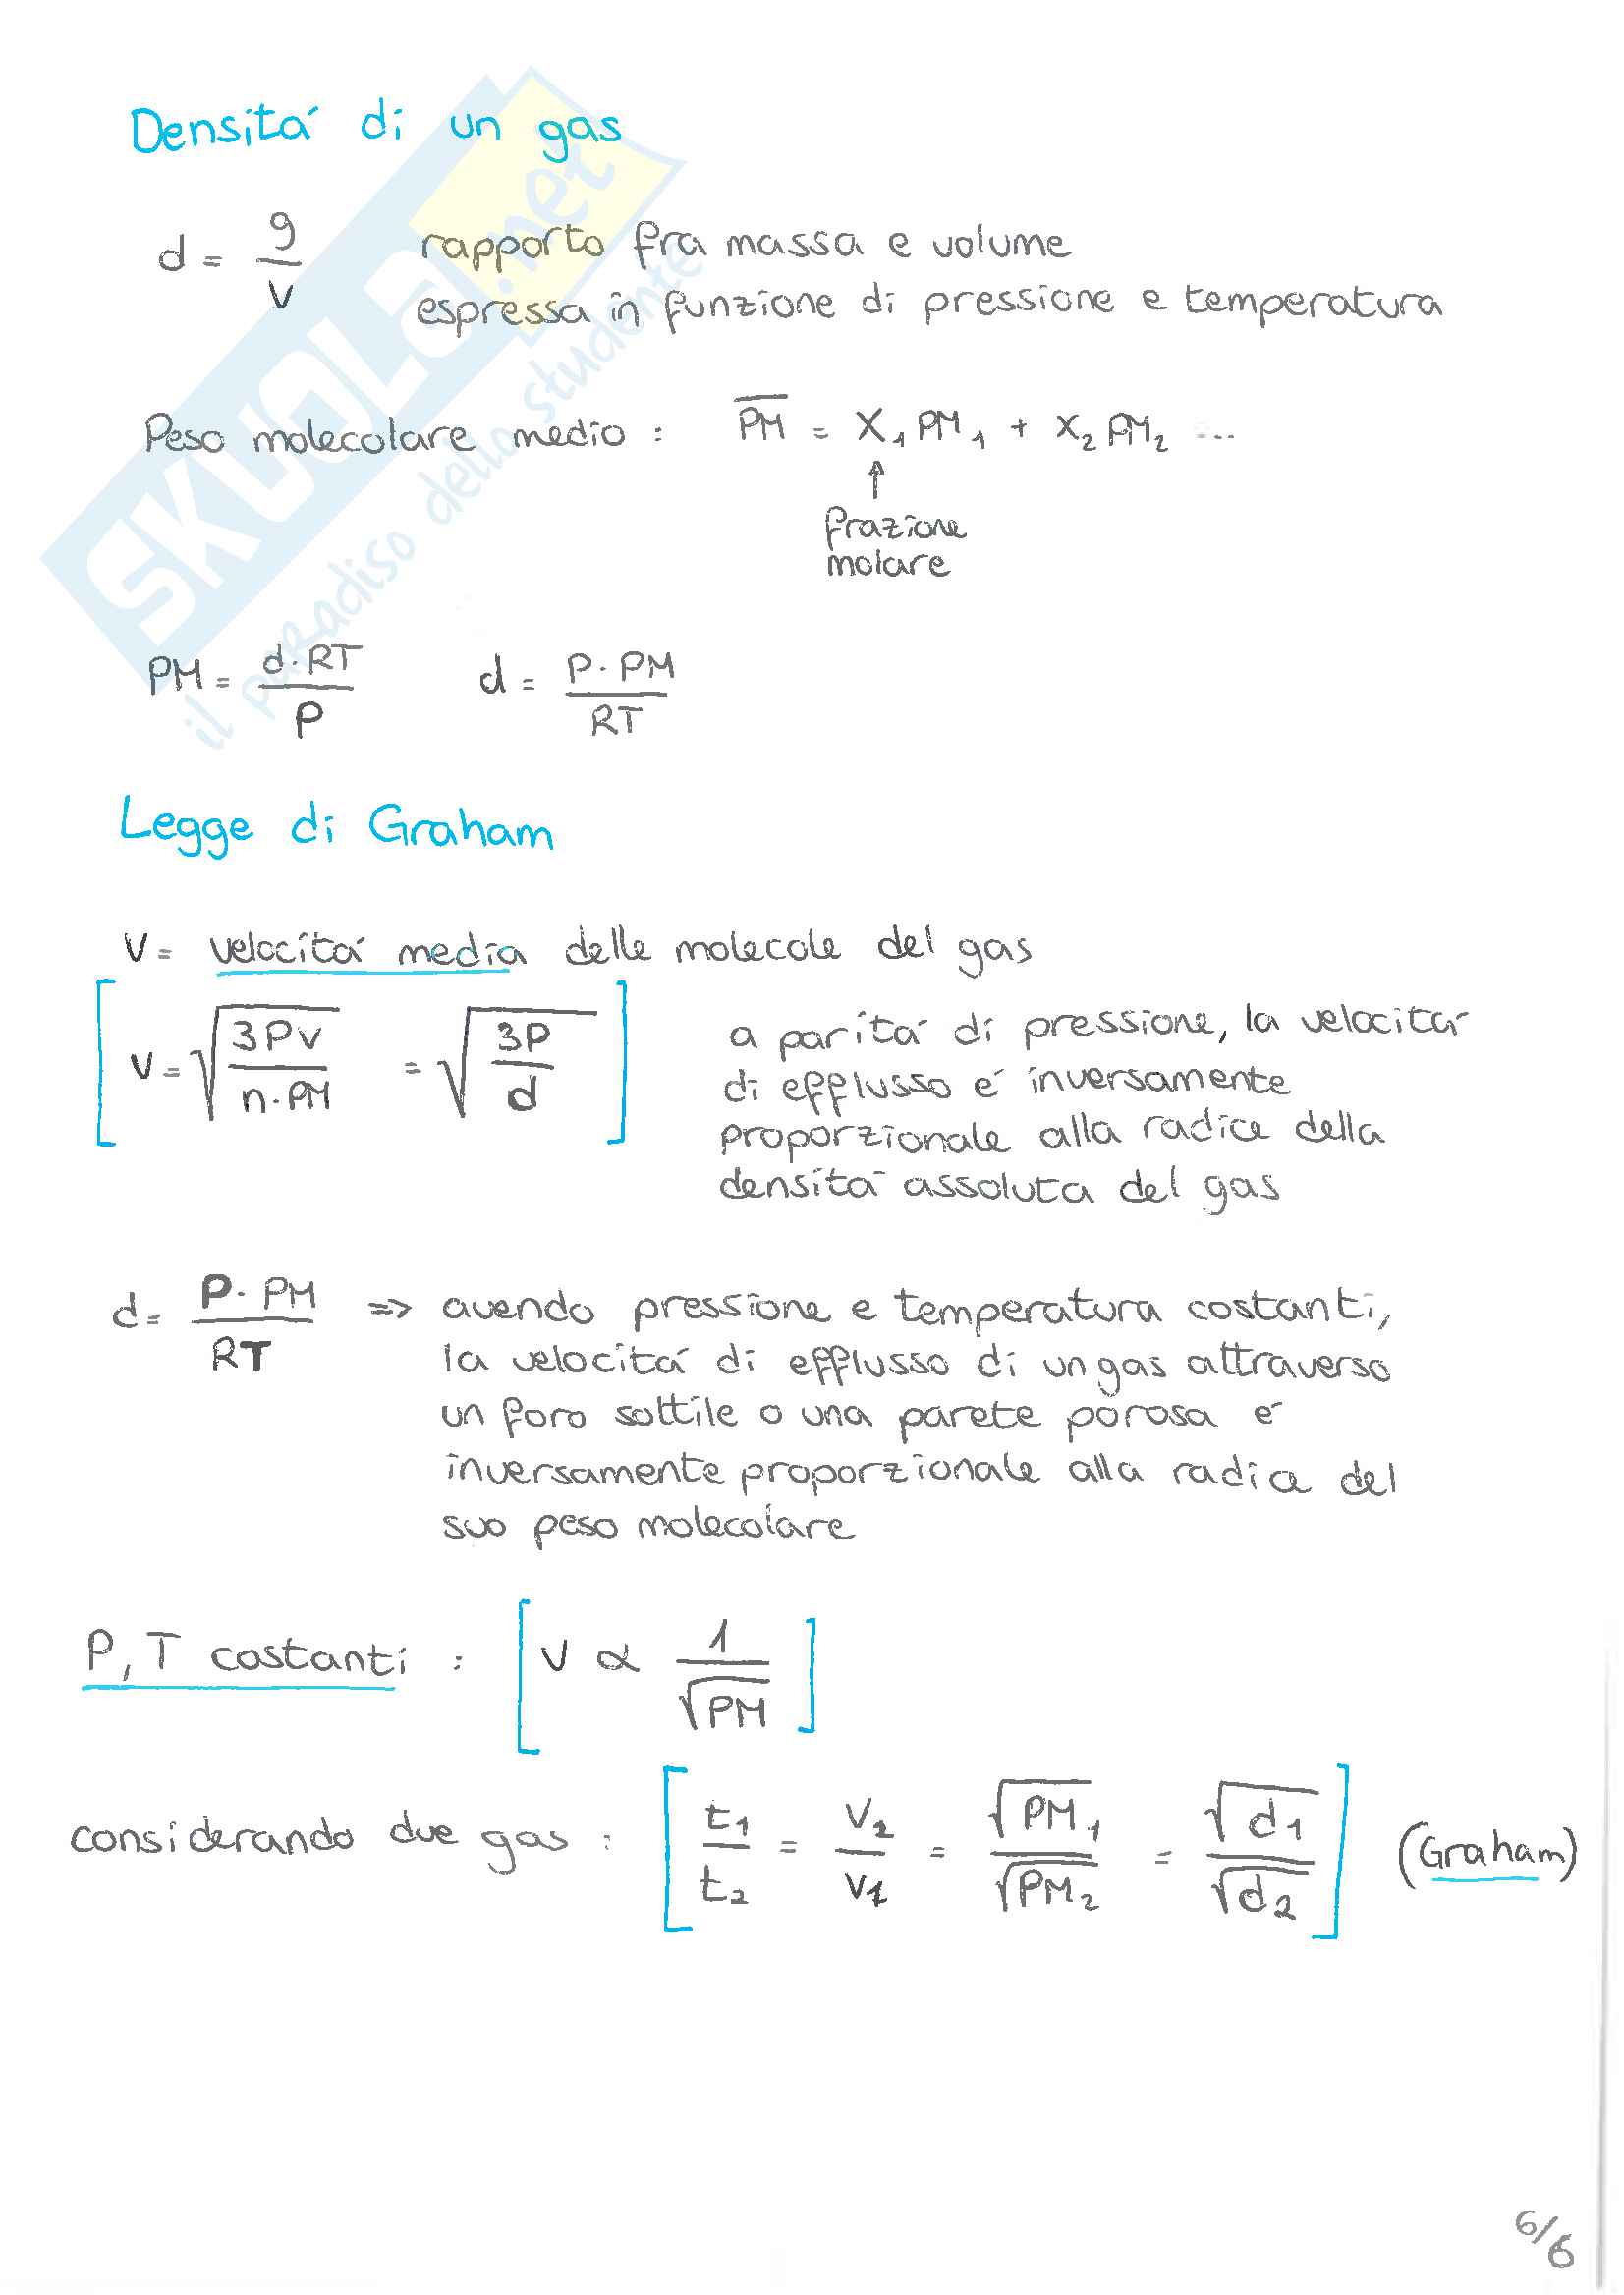 Densitá di un gas
d = g/V rapporto fra massa e volume
espressa in funzione di pressione e temperatura
Peso molecolare medio : P̅M̅ = X₁PM₁ + X₂PM₂ ...
↑
frazione
molare
PM = d·RT/P d = P·PM/RT
Legge di Graham
V = velocitá media delle molecole del gas
[V = √(3PV/n·PM) = √(3P/d)]
a paritá di pressione, la velocitá
di efflusso é inversamente
proporzionale alla radice della
densitá assoluta del gas
d = P·PM/RT => avendo pressione e temperatura costanti,
la velocitá di efflusso di un gas attraverso
un foro sottile o una parete porosa é
inversamente proporzionale alla radice del
suo peso molecolare
P, T costanti : [V ∝ 1/√PM]
considerando due gas : [t₁/t₂ = V₂/V₁ = √PM₁/√PM₂ = √d₁/√d₂] (Graham)
6/6
SKUOLA.net
il paradiso dello studente